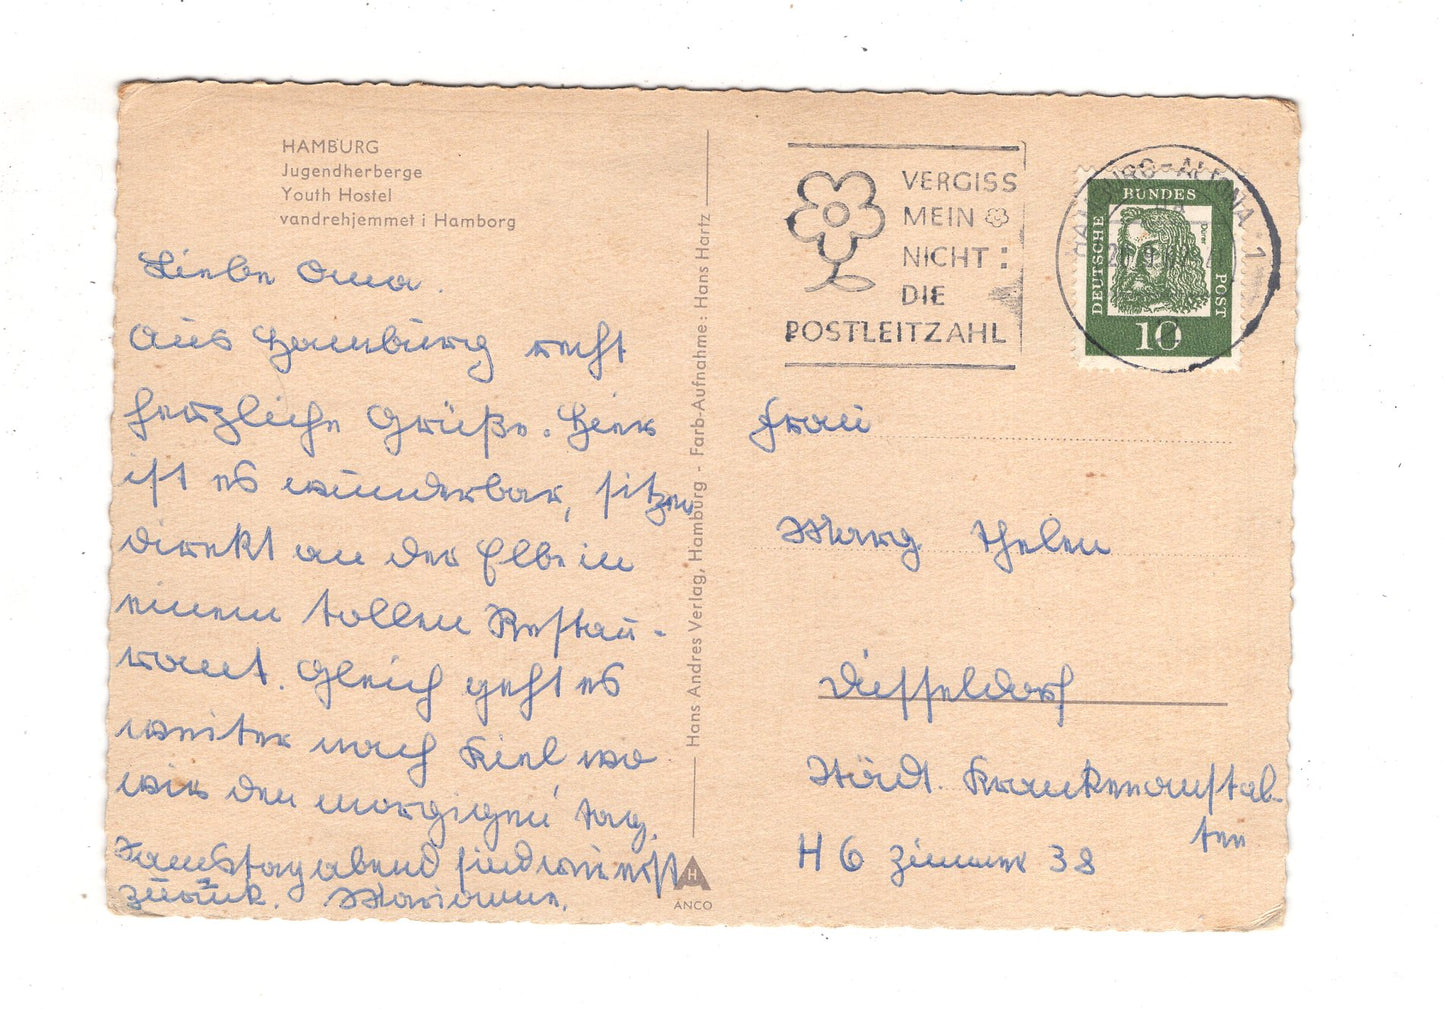 HAMBURG
Jugendherberge
Youth Hostel
vandrehjemmet i Hamborg
Liebe Oma.
Aus Hamburg recht
herzliche Grüße. Hier
ist es wunderbar, sitzen
direkt an der Elbe in
einem tollen Restau-
rant. Gleich geht es
weiter nach Kiel wo
wir den morgigen Tag.
Samstag abend sind wir erst
zurück. Marianne.
Hans Andres Verlag, Hamburg - Farb-Aufnahme: Hans Hartz
H
ANCO
VERGISS
MEIN
NICHT:
DIE
POSTLEITZAHL
HAMBURG-ALTONA 1
DEUTSCHE
BUNDES
POST
Dürer
10
Frau
Marg Thelen
Düsseldorf
Städt. Krankenanstal-
ten
H 6 Zimmer 38